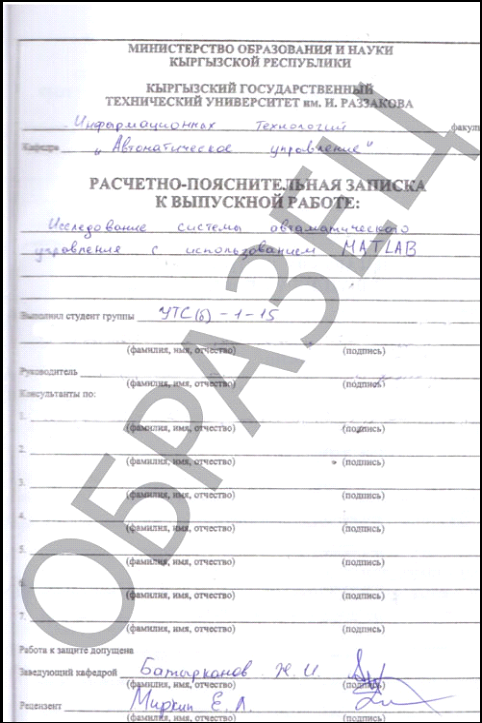 МИНИСТЕРСТВО ОБРАЗОВАНИЯ И НАУКИ
КЫРГЫЗСКОЙ РЕСПУБЛИКИ
КЫРГЫЗСКИЙ ГОСУДАРСТВЕННЫЙ
ТЕХНИЧЕСКИЙ УНИВЕРСИТЕТ им. И. РАЗЗАКОВА
Информационных Технологий факул
Кафедра „Автоматическое управление"
РАСЧЕТНО-ПОЯСНИТЕЛЬНАЯ ЗАПИСКА
К ВЫПУСКНОЙ РАБОТЕ:
Исследование системы автоматического
управления с использованием MATLAB
Выполнил студент группы УТС(б) - 1 - 15
(фамилия, имя, отчество) (подпись)
Руководитель
(фамилия, имя, отчество) (подпись)
Консультанты по:
1.
(фамилия, имя, отчество) (подпись)
2.
(фамилия, имя, отчество) (подпись)
3.
(фамилия, имя, отчество) (подпись)
4.
(фамилия, имя, отчество) (подпись)
5.
(фамилия, имя, отчество) (подпись)
6.
(фамилия, имя, отчество) (подпись)
7.
(фамилия, имя, отчество) (подпись)
Работа к защите допущена
Заведующий кафедрой Батырканов Ж. И.
(фамилия, имя, отчество) (подпись)
Рецензент Миркин Е. Л.
(фамилия, имя, отчество) (подпись)
ОБРАЗЕЦ